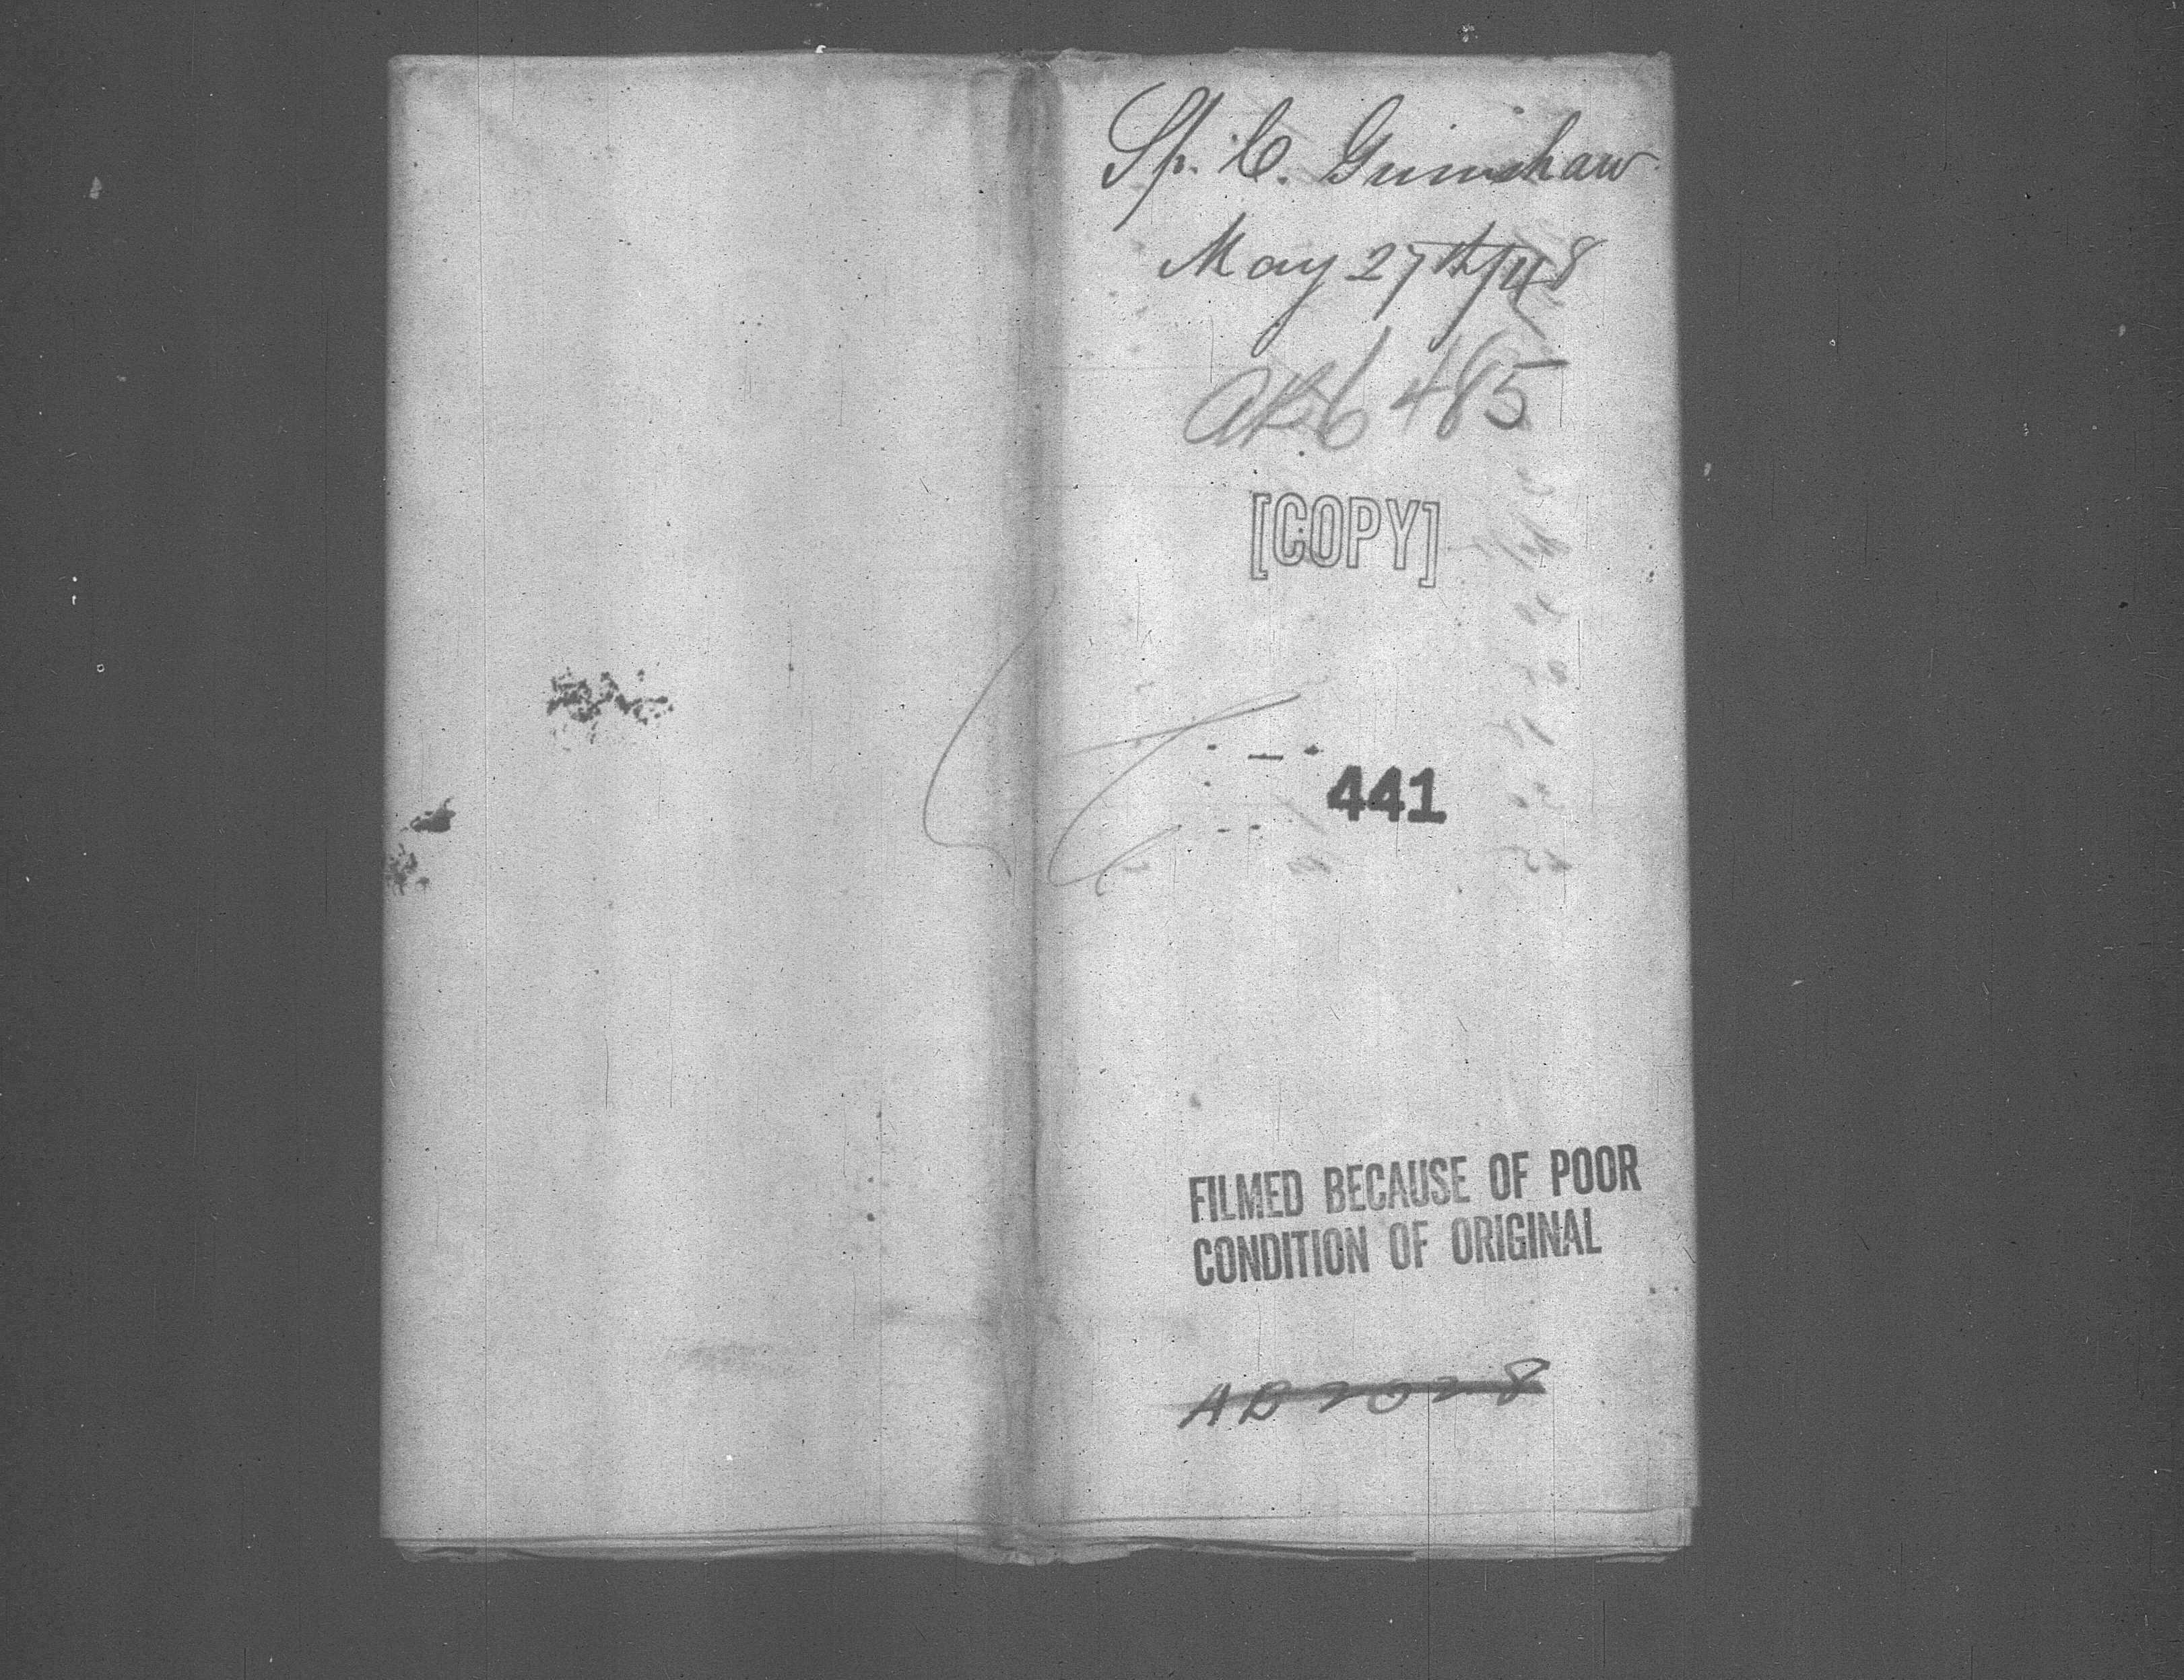 Sp. C. Grimshaw
May 27th/48
AB6485
[COPY]
441
FILMED BECAUSE OF POOR
CONDITION OF ORIGINAL
AB 2028